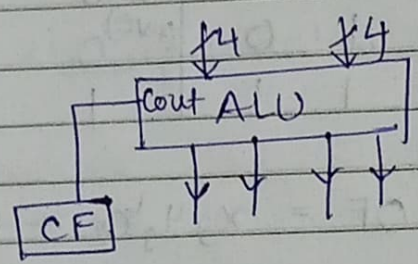 4 4
Cout ALU
CF